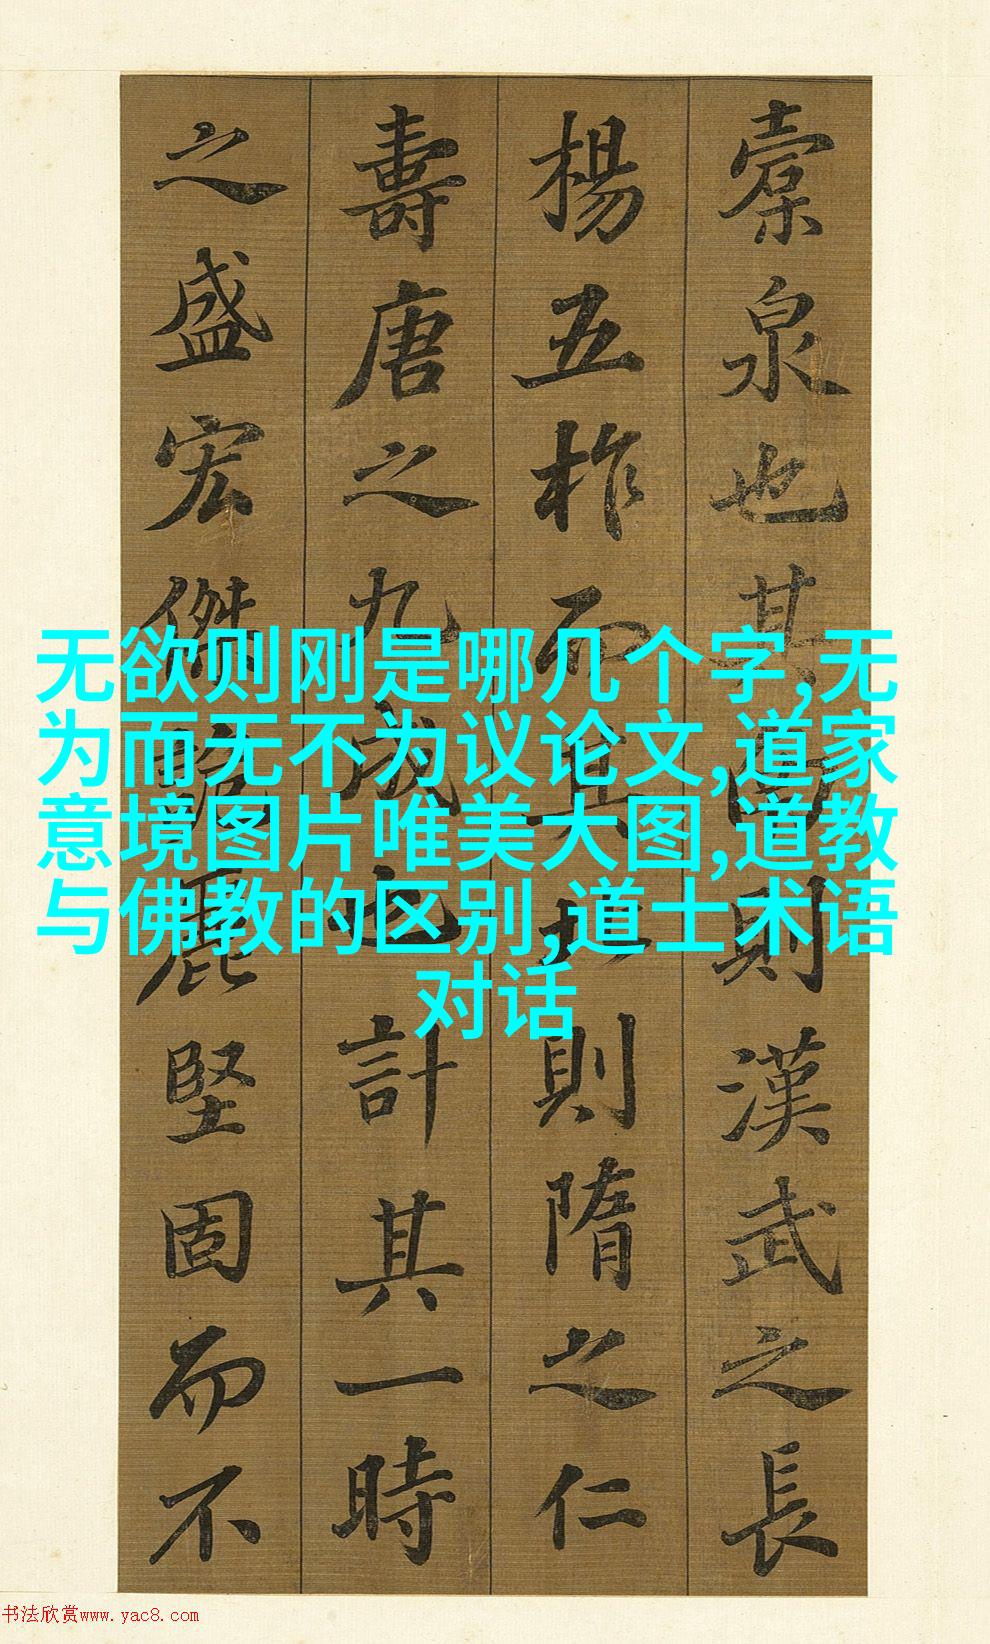 橐泉也其南則漢武之長
楊五柞而其北則隋之仁
壽唐之九成也計其一時
之盛宏傑詭麗堅固而不
无欲则刚是哪几个字,无
为而无不为议论文,道家
意境图片唯美大图,道教
与佛教的区别,道士术语
对话
书法欣赏www.yac8.com